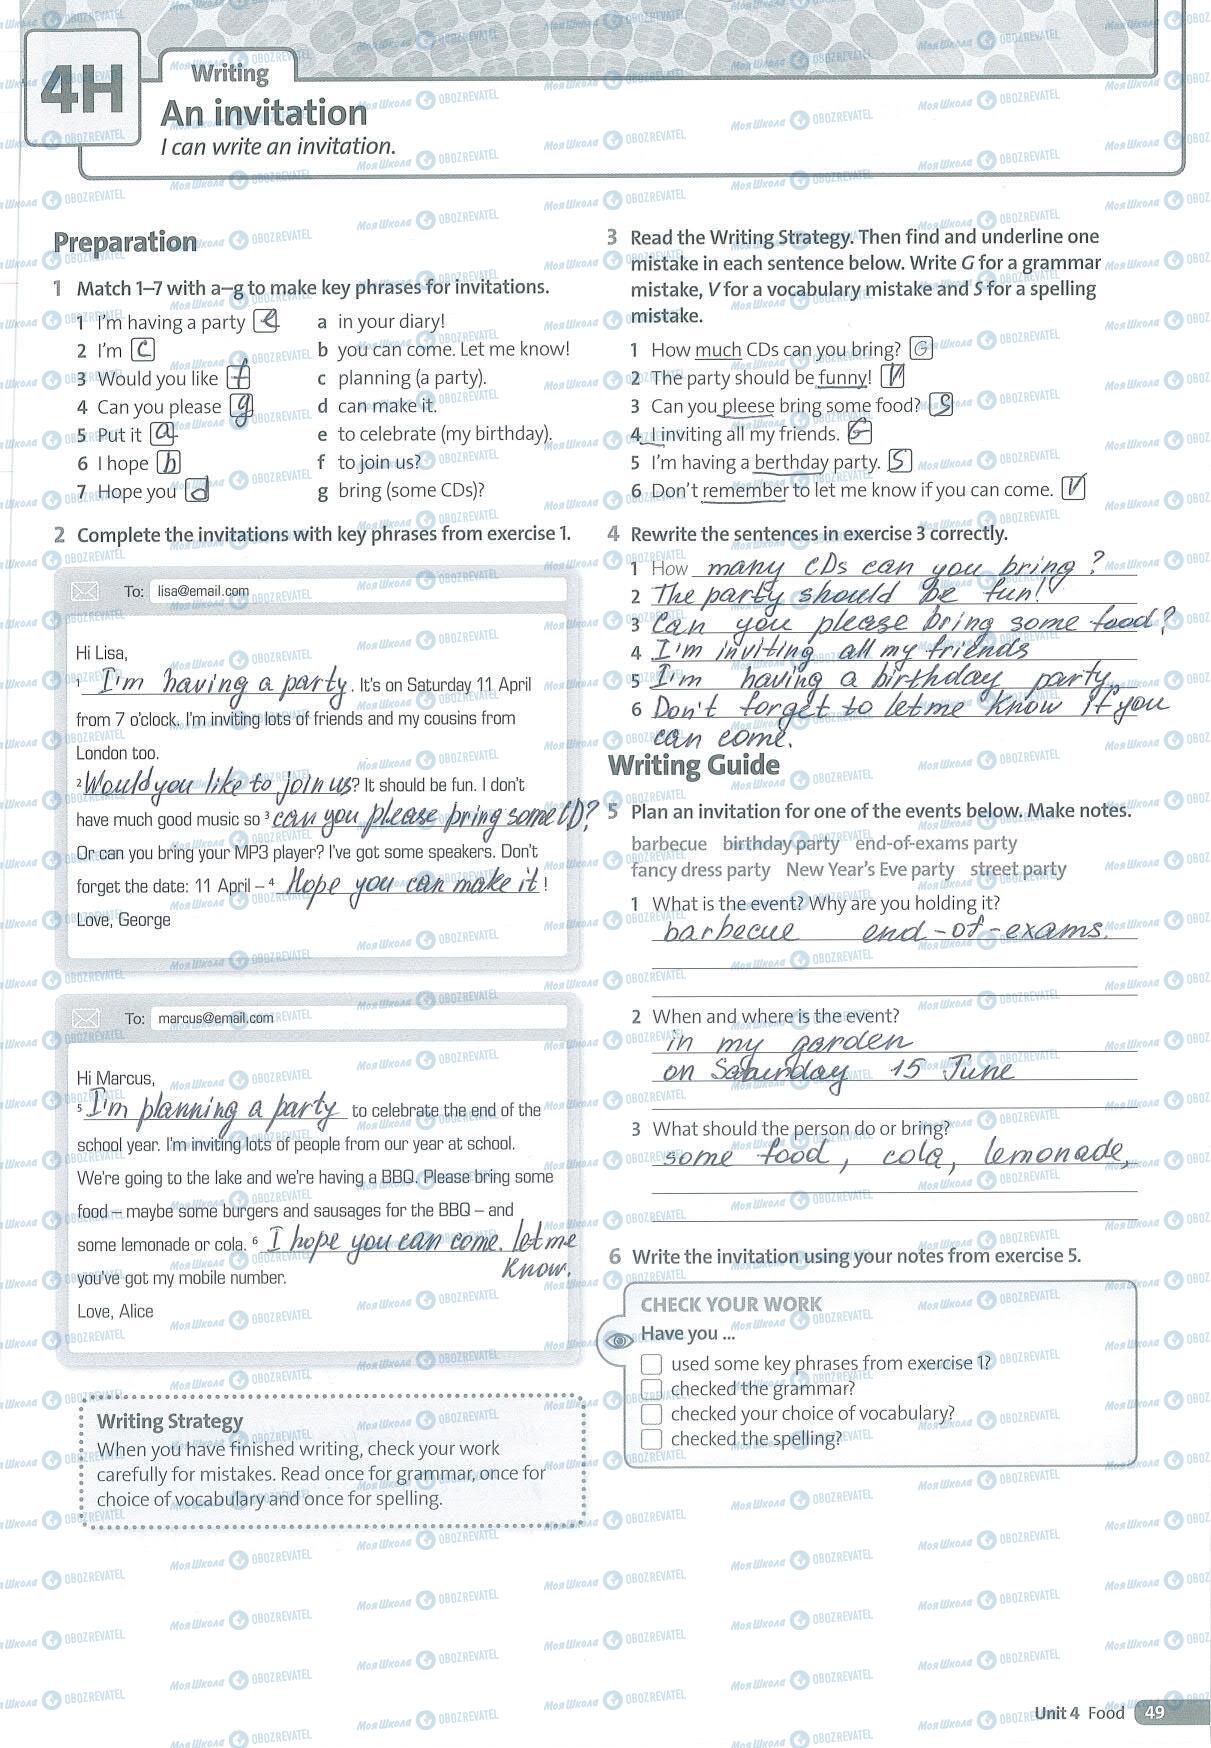 4H
Writing
An invitation
I can write an invitation.
Preparation
1 Match 1–7 with a–g to make key phrases for invitations.
1 I'm having a party e
2 I'm c
3 Would you like f
4 Can you please g
5 Put it a
6 I hope b
7 Hope you d
a in your diary!
b you can come. Let me know!
c planning (a party).
d can make it.
e to celebrate (my birthday).
f to join us?
g bring (some CDs)?
2 Complete the invitations with key phrases from exercise 1.
To: lisa@email.com
Hi Lisa,
1 I'm having a party. It's on Saturday 11 April
from 7 o'clock. I'm inviting lots of friends and my cousins from
London too.
2 Would you like to join us? It should be fun. I don't
have much good music so 3 can you please bring some CD?
Or can you bring your MP3 player? I've got some speakers. Don't
forget the date: 11 April – 4 Hope you can make it!
Love, George
To: marcus@email.com
Hi Marcus,
5 I'm planning a party to celebrate the end of the
school year. I'm inviting lots of people from our year at school.
We're going to the lake and we're having a BBQ. Please bring some
food – maybe some burgers and sausages for the BBQ – and
some lemonade or cola. 6 I hope you can come. let me
know.
you've got my mobile number.
Love, Alice
Writing Strategy
When you have finished writing, check your work
carefully for mistakes. Read once for grammar, once for
choice of vocabulary and once for spelling.
3 Read the Writing Strategy. Then find and underline one
mistake in each sentence below. Write G for a grammar
mistake, V for a vocabulary mistake and S for a spelling
mistake.
1 How much CDs can you bring? G
2 The party should be funny! V
3 Can you pleese bring some food? S
4 I inviting all my friends. G
5 I'm having a berthday party. S
6 Don't remember to let me know if you can come. V
4 Rewrite the sentences in exercise 3 correctly.
1 How many CDs can you bring?
2 The party should be fun!
3 Can you please bring some food?
4 I'm inviting all my friends
5 I'm having a birthday party.
6 Don't forget to let me know if you
can come.
Writing Guide
5 Plan an invitation for one of the events below. Make notes.
barbecue birthday party end-of-exams party
fancy dress party New Year's Eve party street party
1 What is the event? Why are you holding it?
barbecue end-of-exams.
2 When and where is the event?
in my garden
on Saturday 15 June
3 What should the person do or bring?
some food, cola, lemonade,
6 Write the invitation using your notes from exercise 5.
CHECK YOUR WORK
Have you ...
used some key phrases from exercise 1?
checked the grammar?
checked your choice of vocabulary?
checked the spelling?
Unit 4 Food 49
Моя Школа OBOZREVATEL